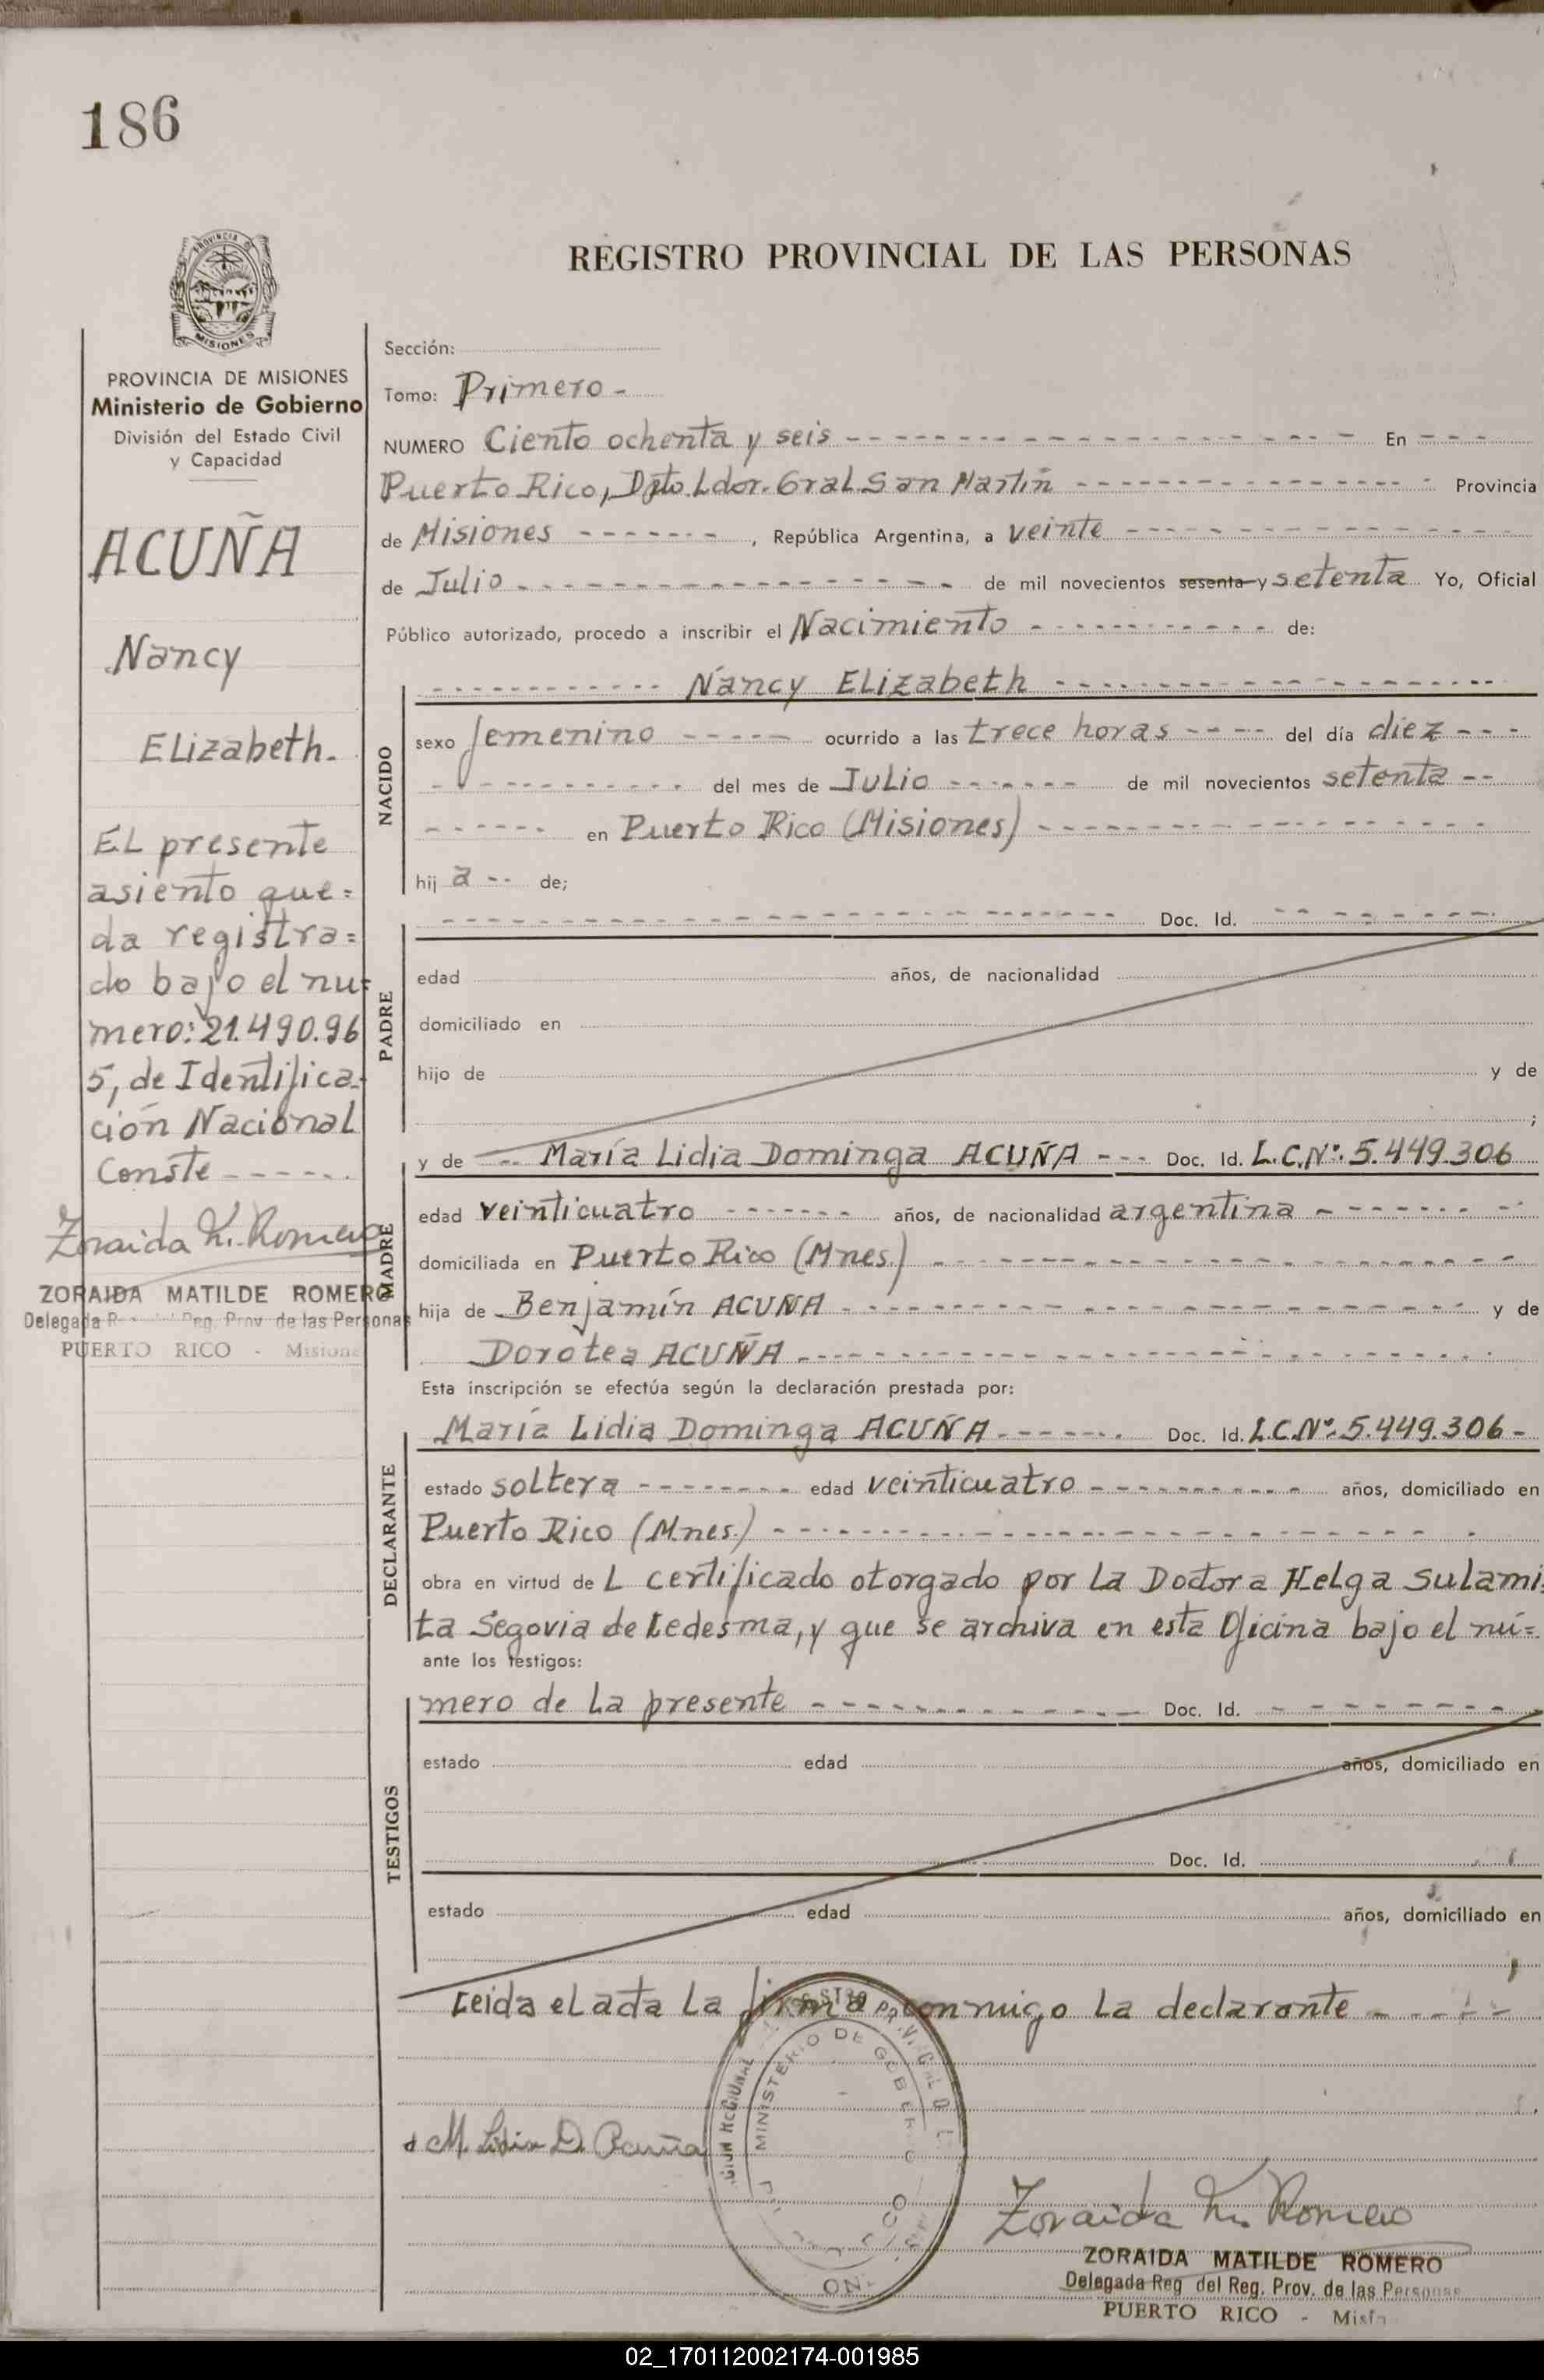 186
PROVINCIA DE
MISIONES
REGISTRO PROVINCIAL DE LAS PERSONAS
PROVINCIA DE MISIONES
Ministerio de Gobierno
División del Estado Civil
y Capacidad
ACUÑA
Nancy
Elizabeth.
El presente
asiento que=
da registra=
do bajo el nu=
mero: 21.490.96
5, de Identifica-
ción Nacional
Conste -----.
Zoraida M. Romero
ZORAIDA MATILDE ROMERO
Delegada Reg. Prov. de las Personas
PUERTO RICO - Misiones
Sección:
Tomo: Primero -
NUMERO Ciento ochenta y seis --- En ---
Puerto Rico, Dpto. Ldor. Gral. San Martín --- Provincia
de Misiones ---, República Argentina, a veinte ---
de Julio --- de mil novecientos sesenta y setenta Yo, Oficial
Público autorizado, procedo a inscribir el Nacimiento --- de:
--- Nancy Elizabeth ---
NACIDO
sexo femenino --- ocurrido a las trece horas --- del día diez ---
--- del mes de Julio --- de mil novecientos setenta --
--- en Puerto Rico (Misiones) ---
hij a -- de;
PADRE
--- Doc. Id. ---
edad años, de nacionalidad
domiciliado en
hijo de y de
;
MADRE
y de -- María Lidia Dominga ACUÑA --- Doc. Id. L.C.Nº: 5.449.306
edad veinticuatro --- años, de nacionalidad argentina ---
domiciliada en Puerto Rico (Mnes.) ---
hija de Benjamín ACUÑA --- y de
Dorotea ACUÑA ---
Esta inscripción se efectúa según la declaración prestada por:
DECLARANTE
María Lidia Dominga ACUÑA --- Doc. Id. L.C.Nº: 5.449.306 -
estado soltera --- edad veinticuatro --- años, domiciliado en
Puerto Rico (Mnes.) ---
obra en virtud de L certificado otorgado por la Doctora Helga Sulami=
ta Segovia de Ledesma, y que se archiva en esta Oficina bajo el nú=
ante los testigos:
TESTIGOS
mero de la presente --- Doc. Id. ---
estado edad años, domiciliado en
Doc. Id.
estado edad años, domiciliado en
Leida el acta la firma conmigo la declarante ---
M. Lidia D. Acuña
MINISTERIO DE GOBIERNO
Zoraida M. Romero
ZORAIDA MATILDE ROMERO
Delegada Reg del Reg. Prov. de las Personas
PUERTO RICO -
02_170112002174-001985